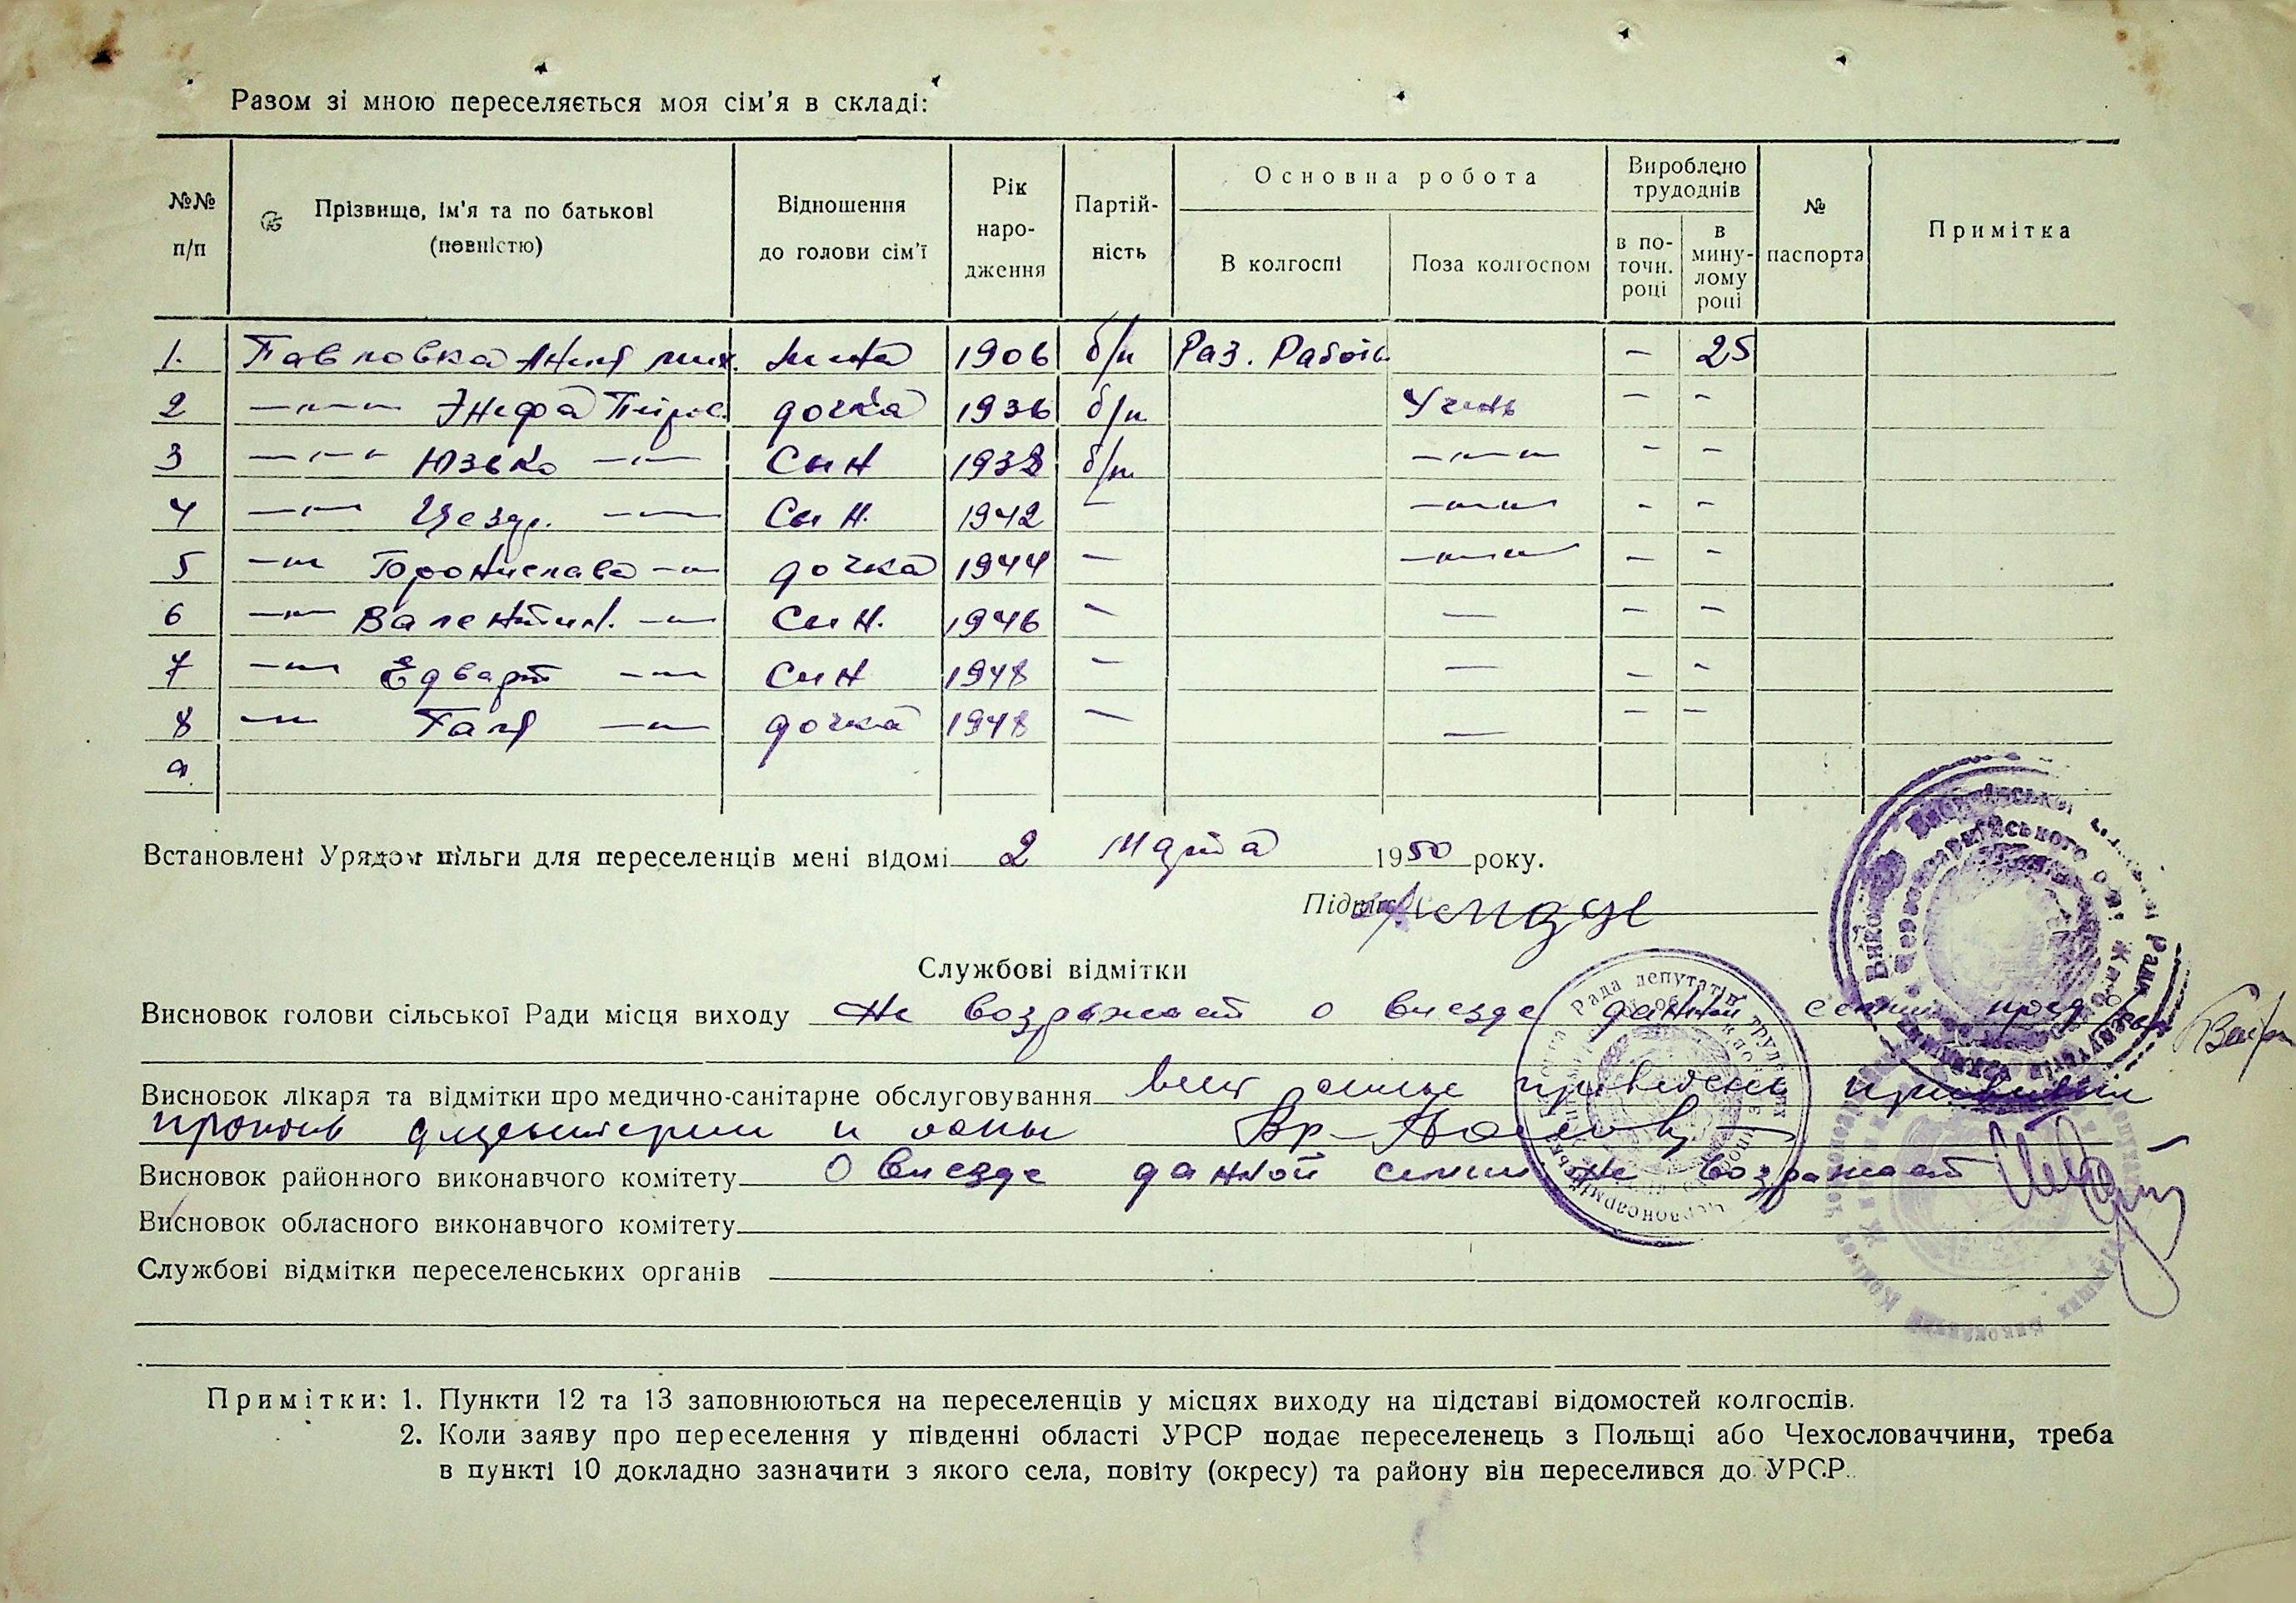 Разом зі мною переселяється моя сім'я в складі:
№№ п/п
Прізвище, ім'я та по батькові (повністю)
Відношення до голови сім'ї
Рік народження
Партійність
Основна робота
В колгоспі
Поза колгоспом
Вироблено трудоднів
в поточн. році
в минулому році
№ паспорта
Примітка
1. Павловка Анеля мих. жена 1906 б/п Раз. Работы — 25
2 —"— дочка 1936 б/п Учень — —
3 —"— Юзько —"— Сын 1938 б/п —"— — —
4 —"— —"— Сын. 1942 — —"— — —
5 —"— Бронислава —"— дочка 1944 — —"— — —
6 —"— Валентин. —"— Сын. 1946 — — — —
7 —"— Едварт —"— Сын 1948 — — — —
8 —"— Галя —"— дочка 1948 — — — —
9
Встановлені Урядом пільги для переселенців мені відомі 2 марта 1950 року.
Підпис
Службові відмітки
Висновок голови сільської Ради місця виходу Не возражает о выезде данной семьи
Висновок лікаря та відмітки про медично-санітарне обслуговування всей семье проведены прививки
против дизентерии и оспы Вр—
Висновок районного виконавчого комітету О выезде данной семьи не возражает
Висновок обласного виконавчого комітету
Службові відмітки переселенських органів
Примітки: 1. Пункти 12 та 13 заповнюються на переселенців у місцях виходу на підставі відомостей колгоспів.
2. Коли заяву про переселення у південні області УРСР подає переселенець з Польщі або Чехословаччини, треба
в пункті 10 докладно зазначити з якого села, повіту (окресу) та району він переселився до УРСР.